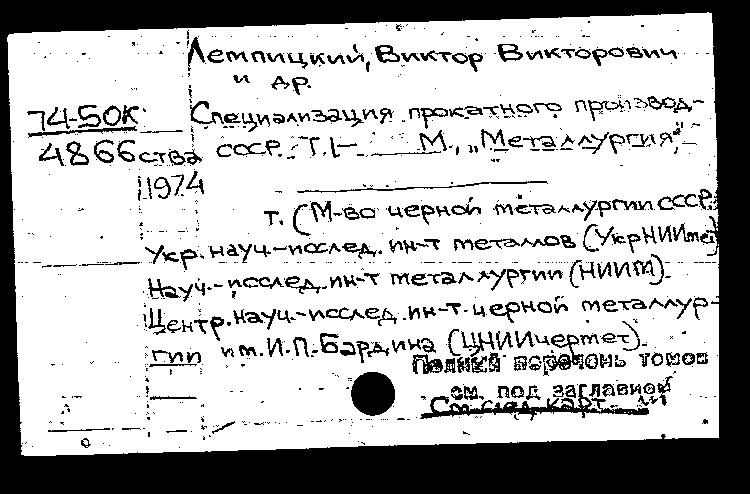 Лемпицкий, Виктор Викторович
и др.
74-50К Специализация прокатного производ-
4866 ства СССР. Т. 1- М., „Металлургия",
1974
т. (М-во черной металлургии СССР.
Укр. науч.-исслед. ин-т металлов (УкрНИИмет)
Науч.-исслед. ин-т металлургии (НИИМ).
Центр. науч.-исслед. ин-т черной металлур-
гии им. И.П. Бардина (ЦНИИчермет).
Полный перечень томов
см. под заглавной
См. след. карт.